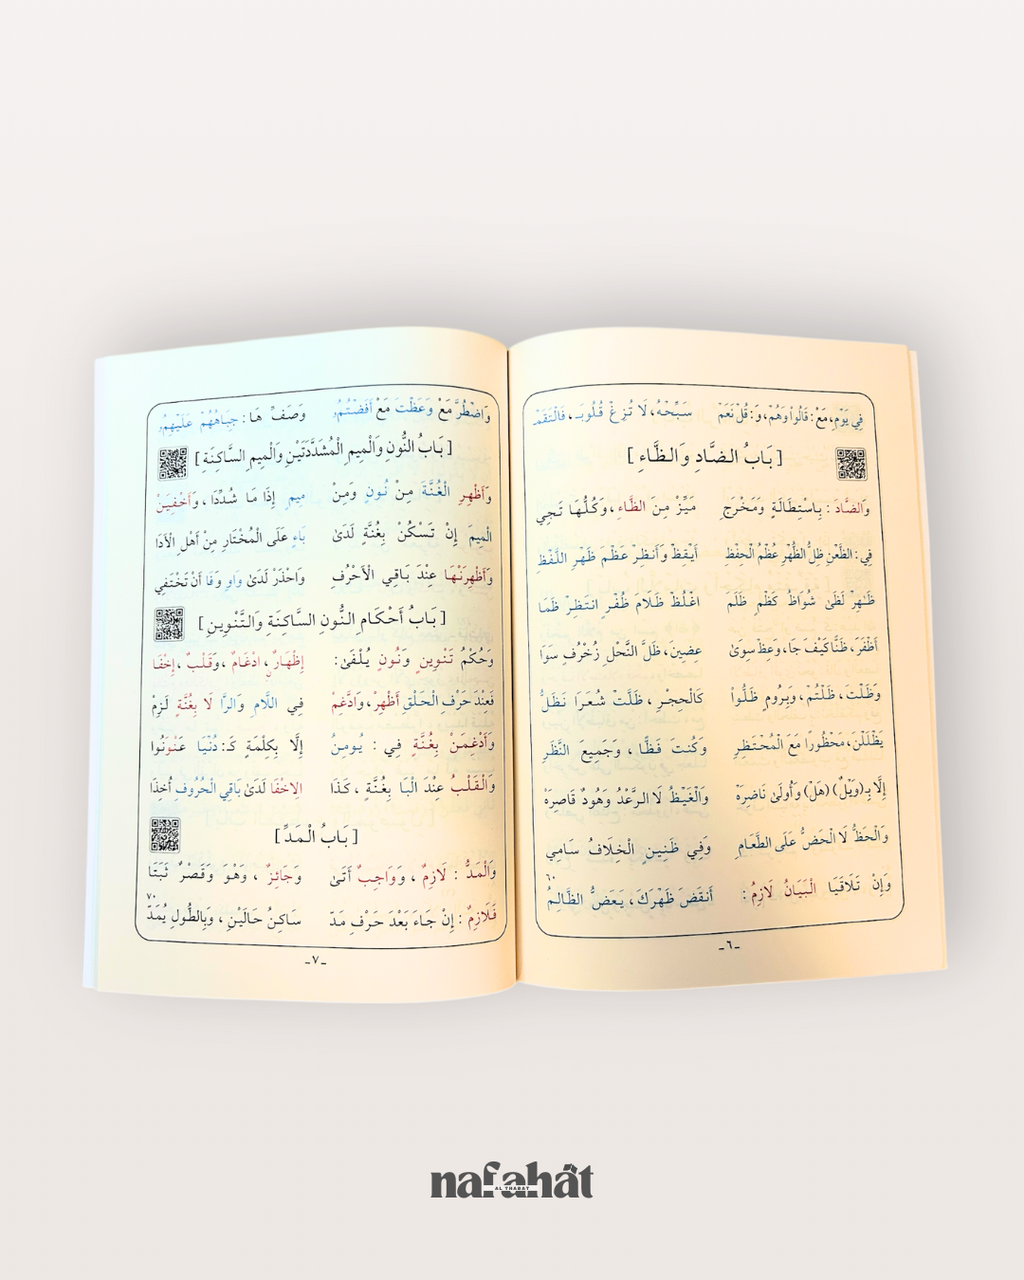 فِي يَوْمِ، مَعْ: قَالُوا وَهُمْ، وَ: قُلْ نَعَمْ سَبِّحْهُ، لَا تُزِغْ قُلُوبَـ، فَالْتَقَمْ
[ بَابُ الضَّادِ وَالظَّاءِ ]
وَالضَّادَ: بِاسْتِطَالَةٍ وَمَخْرَجِ مَيِّزْ مِنَ الظَّاءِ، وَكُلُّهَا تَجِي
فِي: الظَّعْنِ ظِلُّ الظُّهْرِ عُظْمُ الْحِفْظِ أَيْقِظْ وَأَنظِرْ عَظْمَ ظَهْرِ اللَّفْظِ
ظَٰهِرْ لَظَىٰ شُوَاظُ كَظْمٍ ظَلَمَ اغْلُظْ ظَلَامَ ظُفُرٍ انتَظِرْ ظَمَا
أَظْفَرَ، ظَنًّا كَيْفَ جَا، وَعِظْ سِوَىٰ عِضِينَ، ظَلَّ النَّحْلِ زُخْرُفٍ سَوَا
وَظَلْتَ، ظَلْتُمْ، وَبِرُومٍ ظَلُّوا كَالْحِجْرِ، ظَلَّتْ شُعَرَا نَظَلُّ
يَظْلَلْنَ، مَحْظُورًا مَعَ الْمُحْتَظِرِ وَكُنتَ فَظًّا، وَجَمِيعَ النَّظَرِ
إِلَّا بِـ(وَيْلٌ) (هَلْ) وَأُولَىٰ نَاضِرَهْ وَالْغَيْظُ لَا الرَّعْدُ وَهُودٌ قَاصِرَهْ
وَالْحَظُّ لَا الْحَضُّ عَلَى الطَّعَامِ وَفِي ظَنِينٍ الْخِلَافُ سَامِي
٦٠
وَإِنْ تَلَاقَيَا الْبَيَانُ لَازِمُ: أَنقَضَ ظَهْرَكَ، يَعَضُّ الظَّالِمُ
-٦-
وَاضْطُرَّ مَعْ وَعَظْتَ مَعْ أَفَضْتُمُ، وَصَفِّ هَا: جِبَاهُهُمْ عَلَيْهِمُ،
[ بَابُ النُّونِ وَالْمِيمِ الْمُشَدَّدَتَيْنِ وَالْمِيمِ السَّاكِنَةِ ]
وَأَظْهِرِ الْغُنَّةَ مِنْ نُونٍ وَمِنْ مِيمٍ إِذَا مَا شُدِّدَا، وَأَخْفِيَنْ
الْمِيمَ إِنْ تَسْكُنْ بِغُنَّةٍ لَدَىٰ بَاءٍ عَلَى الْمُخْتَارِ مِنْ أَهْلِ الْأَدَا
وَأَظْهِرَنْهَا عِنْدَ بَاقِي الْأَحْرُفِ وَاحْذَرْ لَدَىٰ وَاوٍ وَفَا أَنْ تَخْتَفِي
[ بَابُ أَحْكَامِ النُّونِ السَّاكِنَةِ وَالتَّنْوِينِ ]
وَحُكْمُ تَنْوِينٍ وَنُونٍ يُلْفَىٰ: إِظْهَارٌ، ادْغَامٌ، وَقَلْبٌ، إِخْفَا
فَعِنْدَ حَرْفِ الْحَلْقِ أَظْهِرْ، وَادَّغِمْ فِي اللَّامِ وَالرَّا لَا بِغُنَّةٍ لَزِمْ
وَأَدْغِمَنْ بِغُنَّةٍ فِي: يُومِنُ إِلَّا بِكِلْمَةٍ كَـ: دُنْيَا عَنْوَنُوا
وَالْقَلْبُ عِنْدَ الْبَا بِغُنَّةٍ، كَذَا الِاخْفَا لَدَىٰ بَاقِي الْحُرُوفِ أُخِذَا
[ بَابُ الْمَدِّ ]
وَالْمَدُّ: لَازِمٌ، وَوَاجِبٌ أَتَىٰ وَجَائِزٌ، وَهْوَ وَقَصْرٌ ثَبَتَا
٧٠
فَلَازِمٌ: إِنْ جَاءَ بَعْدَ حَرْفِ مَدّ سَاكِنُ حَالَيْنِ، وَبِالطُّولِ يُمَدّ
-٧-
nafahât
AL THABAT